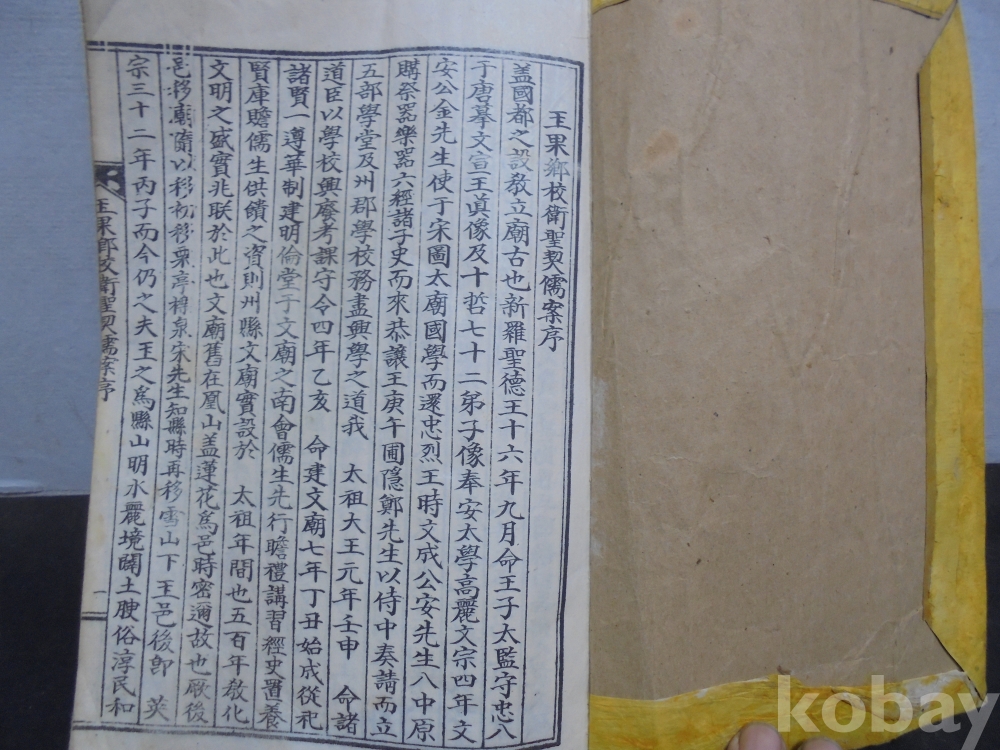 玉果鄕校衛聖契儒案序
盖國都之設敎立廟古也新羅聖德王十六年九月命王子太監守忠入
于唐摹文宣王眞像及十哲七十二弟子像奉安太學高麗文宗四年文
安公金先生使于宋圖太廟國學而還忠烈王時文成公安先生入中原
購祭器樂器六經諸子史而來恭讓王庚午圃隱鄭先生以侍中奏請而立
五部學堂及州郡學校務盡興學之道我 太祖大王元年壬申 命諸
道臣以學校興廢考課守令四年乙亥 命建文廟七年丁丑始成從祀
諸賢一遵華制建明倫堂于文廟之南會儒生先行瞻禮講習經史置養
賢庫贍儒生供饋之資則州縣文廟實設於 太祖年間也五百年敎化
文明之盛實兆联於此也文廟舊在凰山盖蓮花爲邑時密邇故也厥後
邑移廟隨以移初移栗亭樽泉宋先生知縣時再移雪山下玉邑後卽 英
宗三十二年丙子而今仍之夫玉之爲縣山明水麗境闢土腴俗淳民和
玉果鄕校衛聖契儒案序
一
kobay